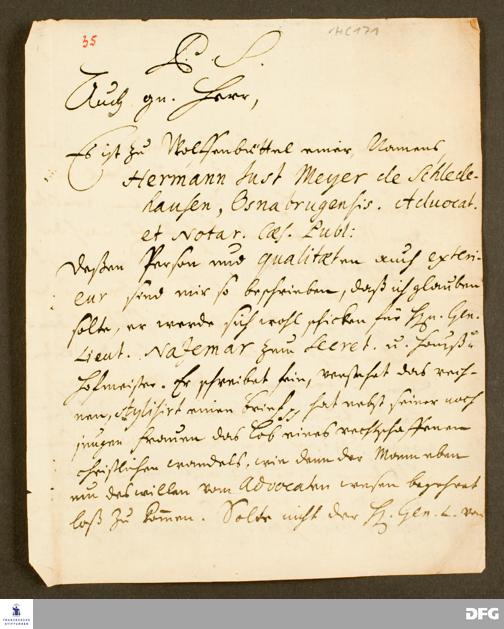 35
HC 171
P. S.
Auch gn. Herr,
Es ist zu Wolffenbüttel einer, Namens
Hermann Just Meyer de Schlede-
hausen, Osnabrugensis. Advocat.
et Notar. Cæs. Publ:
deßen Person und qualitæten auch exteri-
eur sind mir so beschrieben, daß ich glauben
solte, er werde sich wohl schicken für Hrn. Gen.
Lieut. Nazemar zum Secret. u. Hauß
Hofmeister. Er schreibet fein, verstehet das rech-
nen, stylisirt einen brief, hat nebst seiner noch
jungen Frauen das Lob eines rechtschaffenen
christlichen wandels, wie dann der Mann eben
um deswillen vom Advocaten wesen begehret
loß zu kommen. Solte nicht der H. Gen. L. von
FRANCKESCHE
STIFTUNGEN
DFG